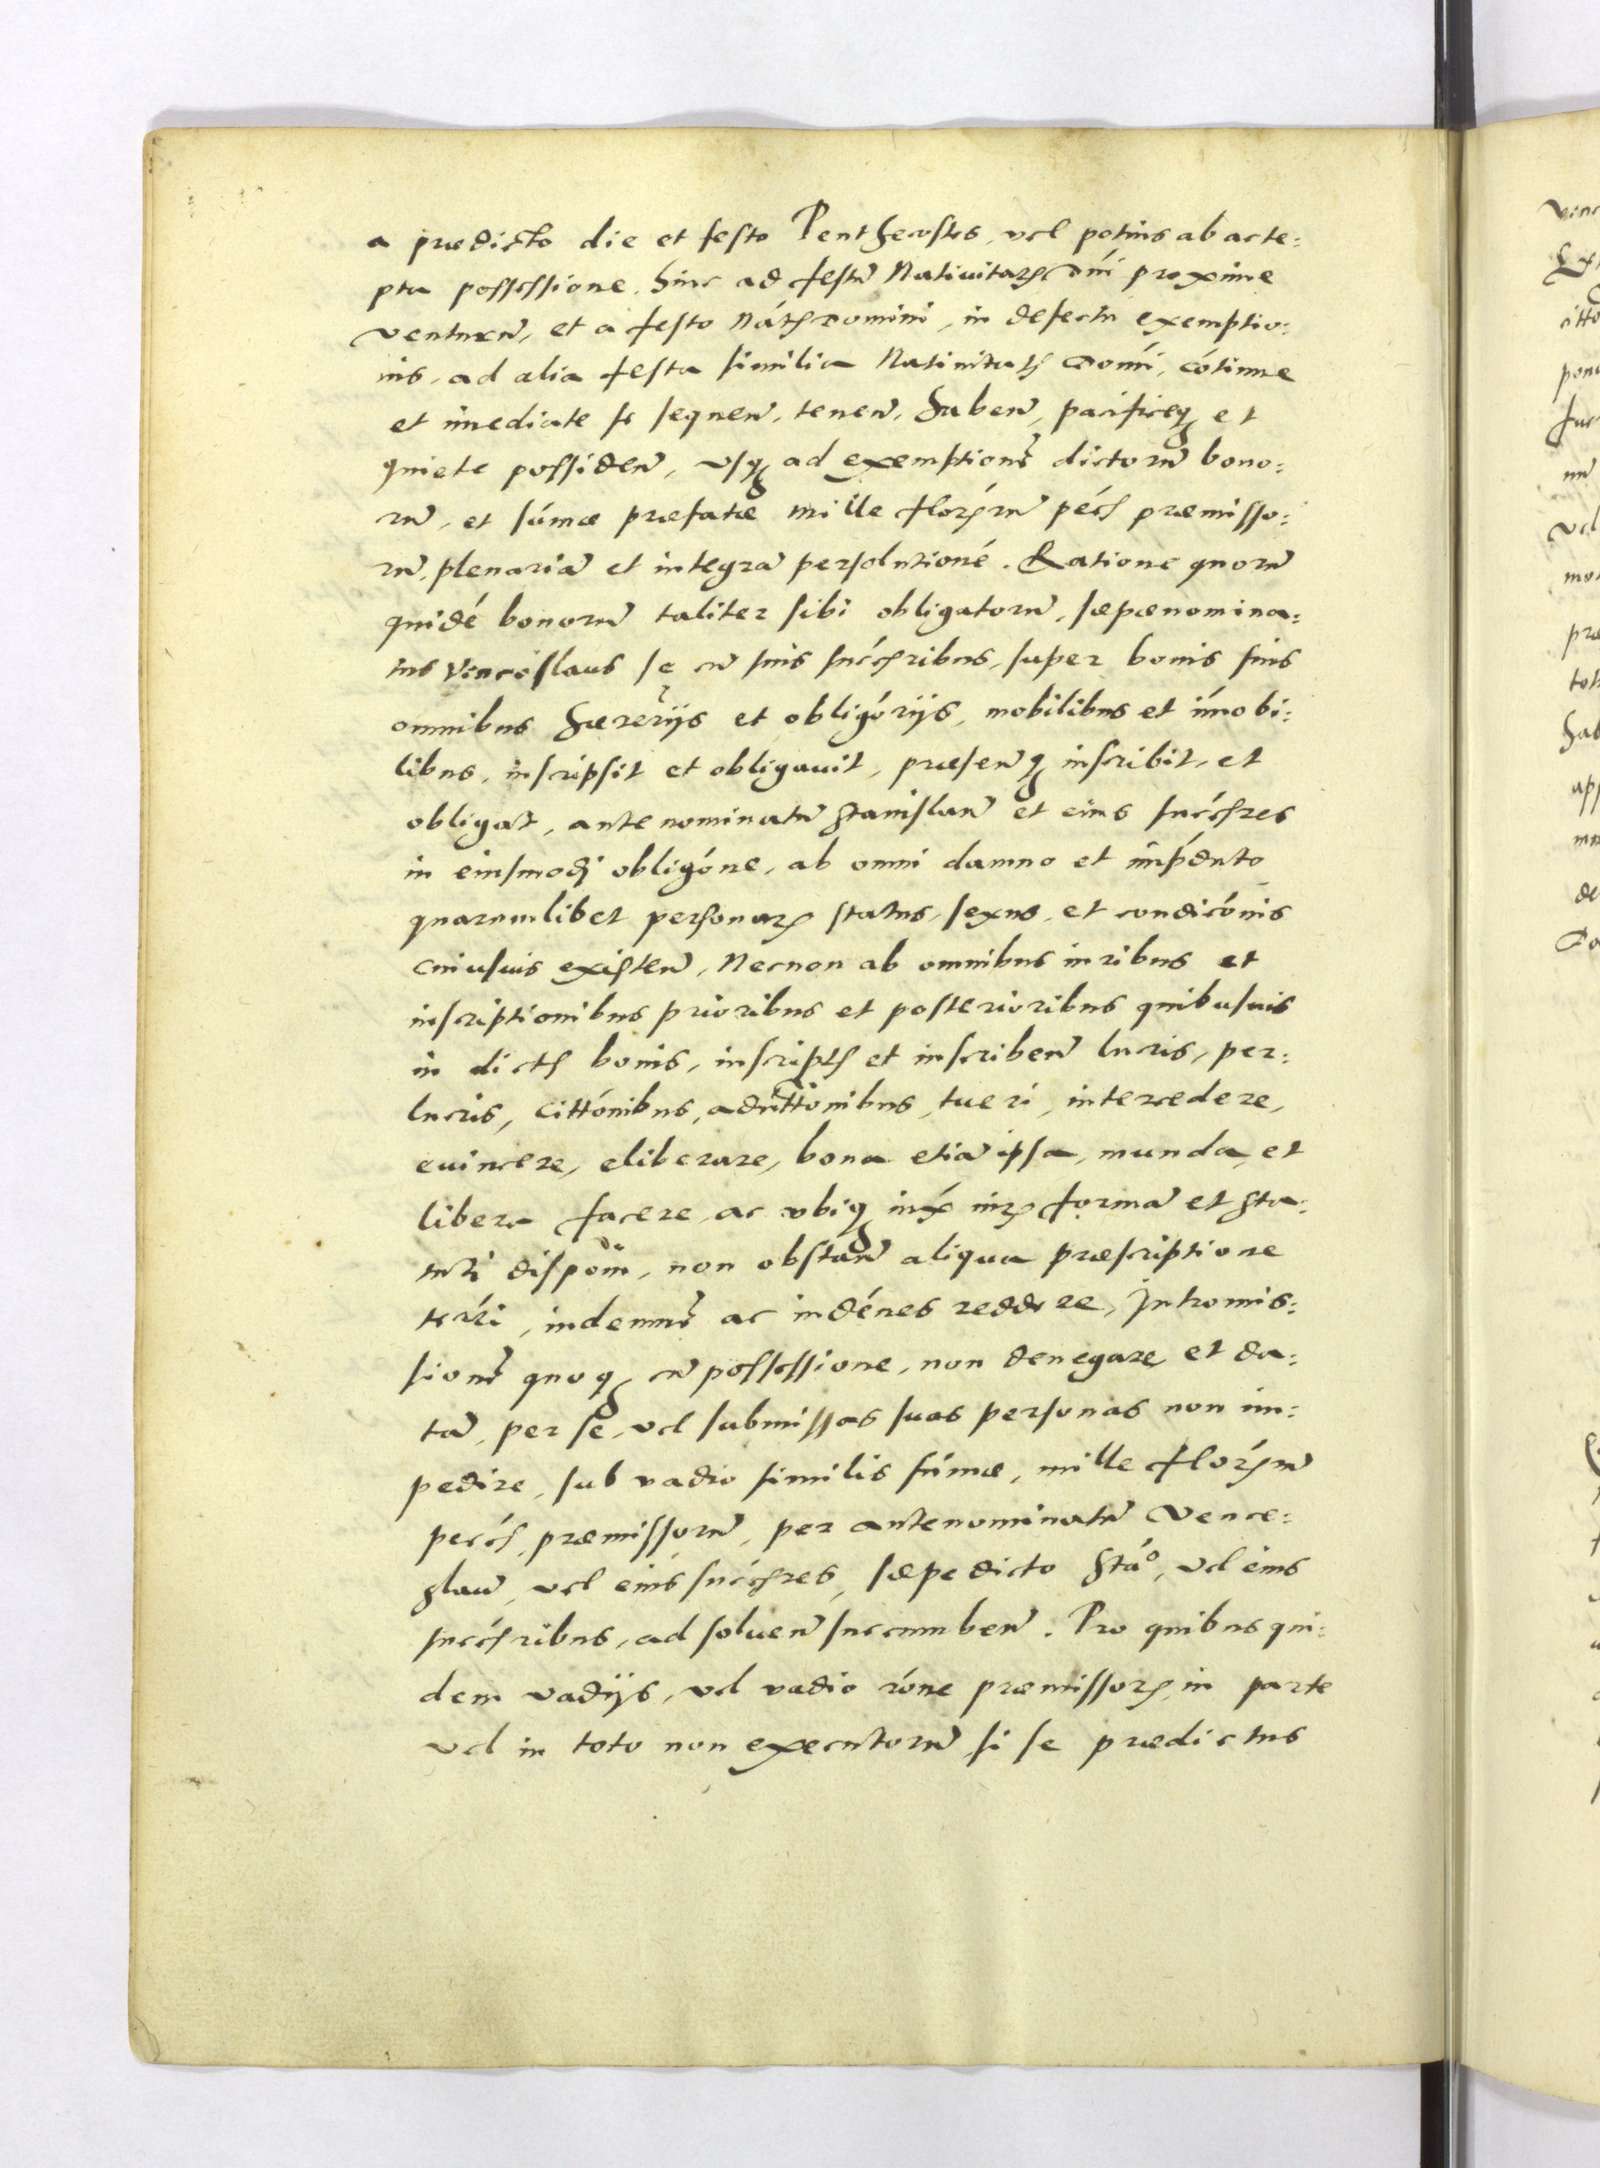 a prædicto die et festo Penthecostes, vel potius ab acce:
pta possessione. hinc ad festū Nativitatꝭ Dńi proxime
venturū, et a festo Nátꝭ Domini, in defectu exemptio:
nis, ad alia festa similia Nativitatꝭ Domi, cótinue
et imediate se sequeñ, teneñ, habeñ, pacificeqꝫ et
quiete possideñ, vsqꝫ ad exemptionē dictorū bono:
rū, et súmæ præfatæ mille florꝭrū pécꝭ præmisso:
rū, plenariā et integrā persolutioné. Ratione quorū
quidé bonorū taliter sibi obligatorū, sæpænomina:
tus Venceslaus se cū suis succꝭribus, super bonis suis
omnibus hæreriis et obligóriis, mobilibus et imobi:
libus, inscripsit et obligavit, præseñqꝫ inscribit, et
obligat, antenominatū Stanislaū et eius succꝭres
in eiusmodi obligóne, ab omni damno et impdnto
quarumlibet personarꝭ status, sexus, et condicónis
cuiusvis existeñ, Necnon ab omnibus iuribus et
inscriptionibus prioribus et posterioribus quibusvis
in dictꝭ bonis, inscriptꝭ et inscribeñ lucris, per:
lucris, cittónibus, adcittónibus, tueri, intercedere,
evincere, eliberare, bona etiā ipsa, munda et
libera facere, ac vbiqꝫ iux iurꝭ formā et sta:
tuti dispom, non obstañ aliqua præscriptione
terŕi, indemnē ac indénes reddere, Intromis:
sionē quoqꝫ cū possessione, non denegare et da:
tā, per se, vel submissas suas personas non im:
pedire, sub vadio similis súmæ, mille florꝭrū
pecꝭ, præmissorū, per antenominatū Vence:
slaū, vel eius succꝭres, sæpedicto Staº, vel eius
succꝭribus, ad solveñ succumbeñ. Pro quibus qui:
dem vadiis, vel vadio róne præmissorꝭ, in parte
vel in toto non executorū si se prædictus